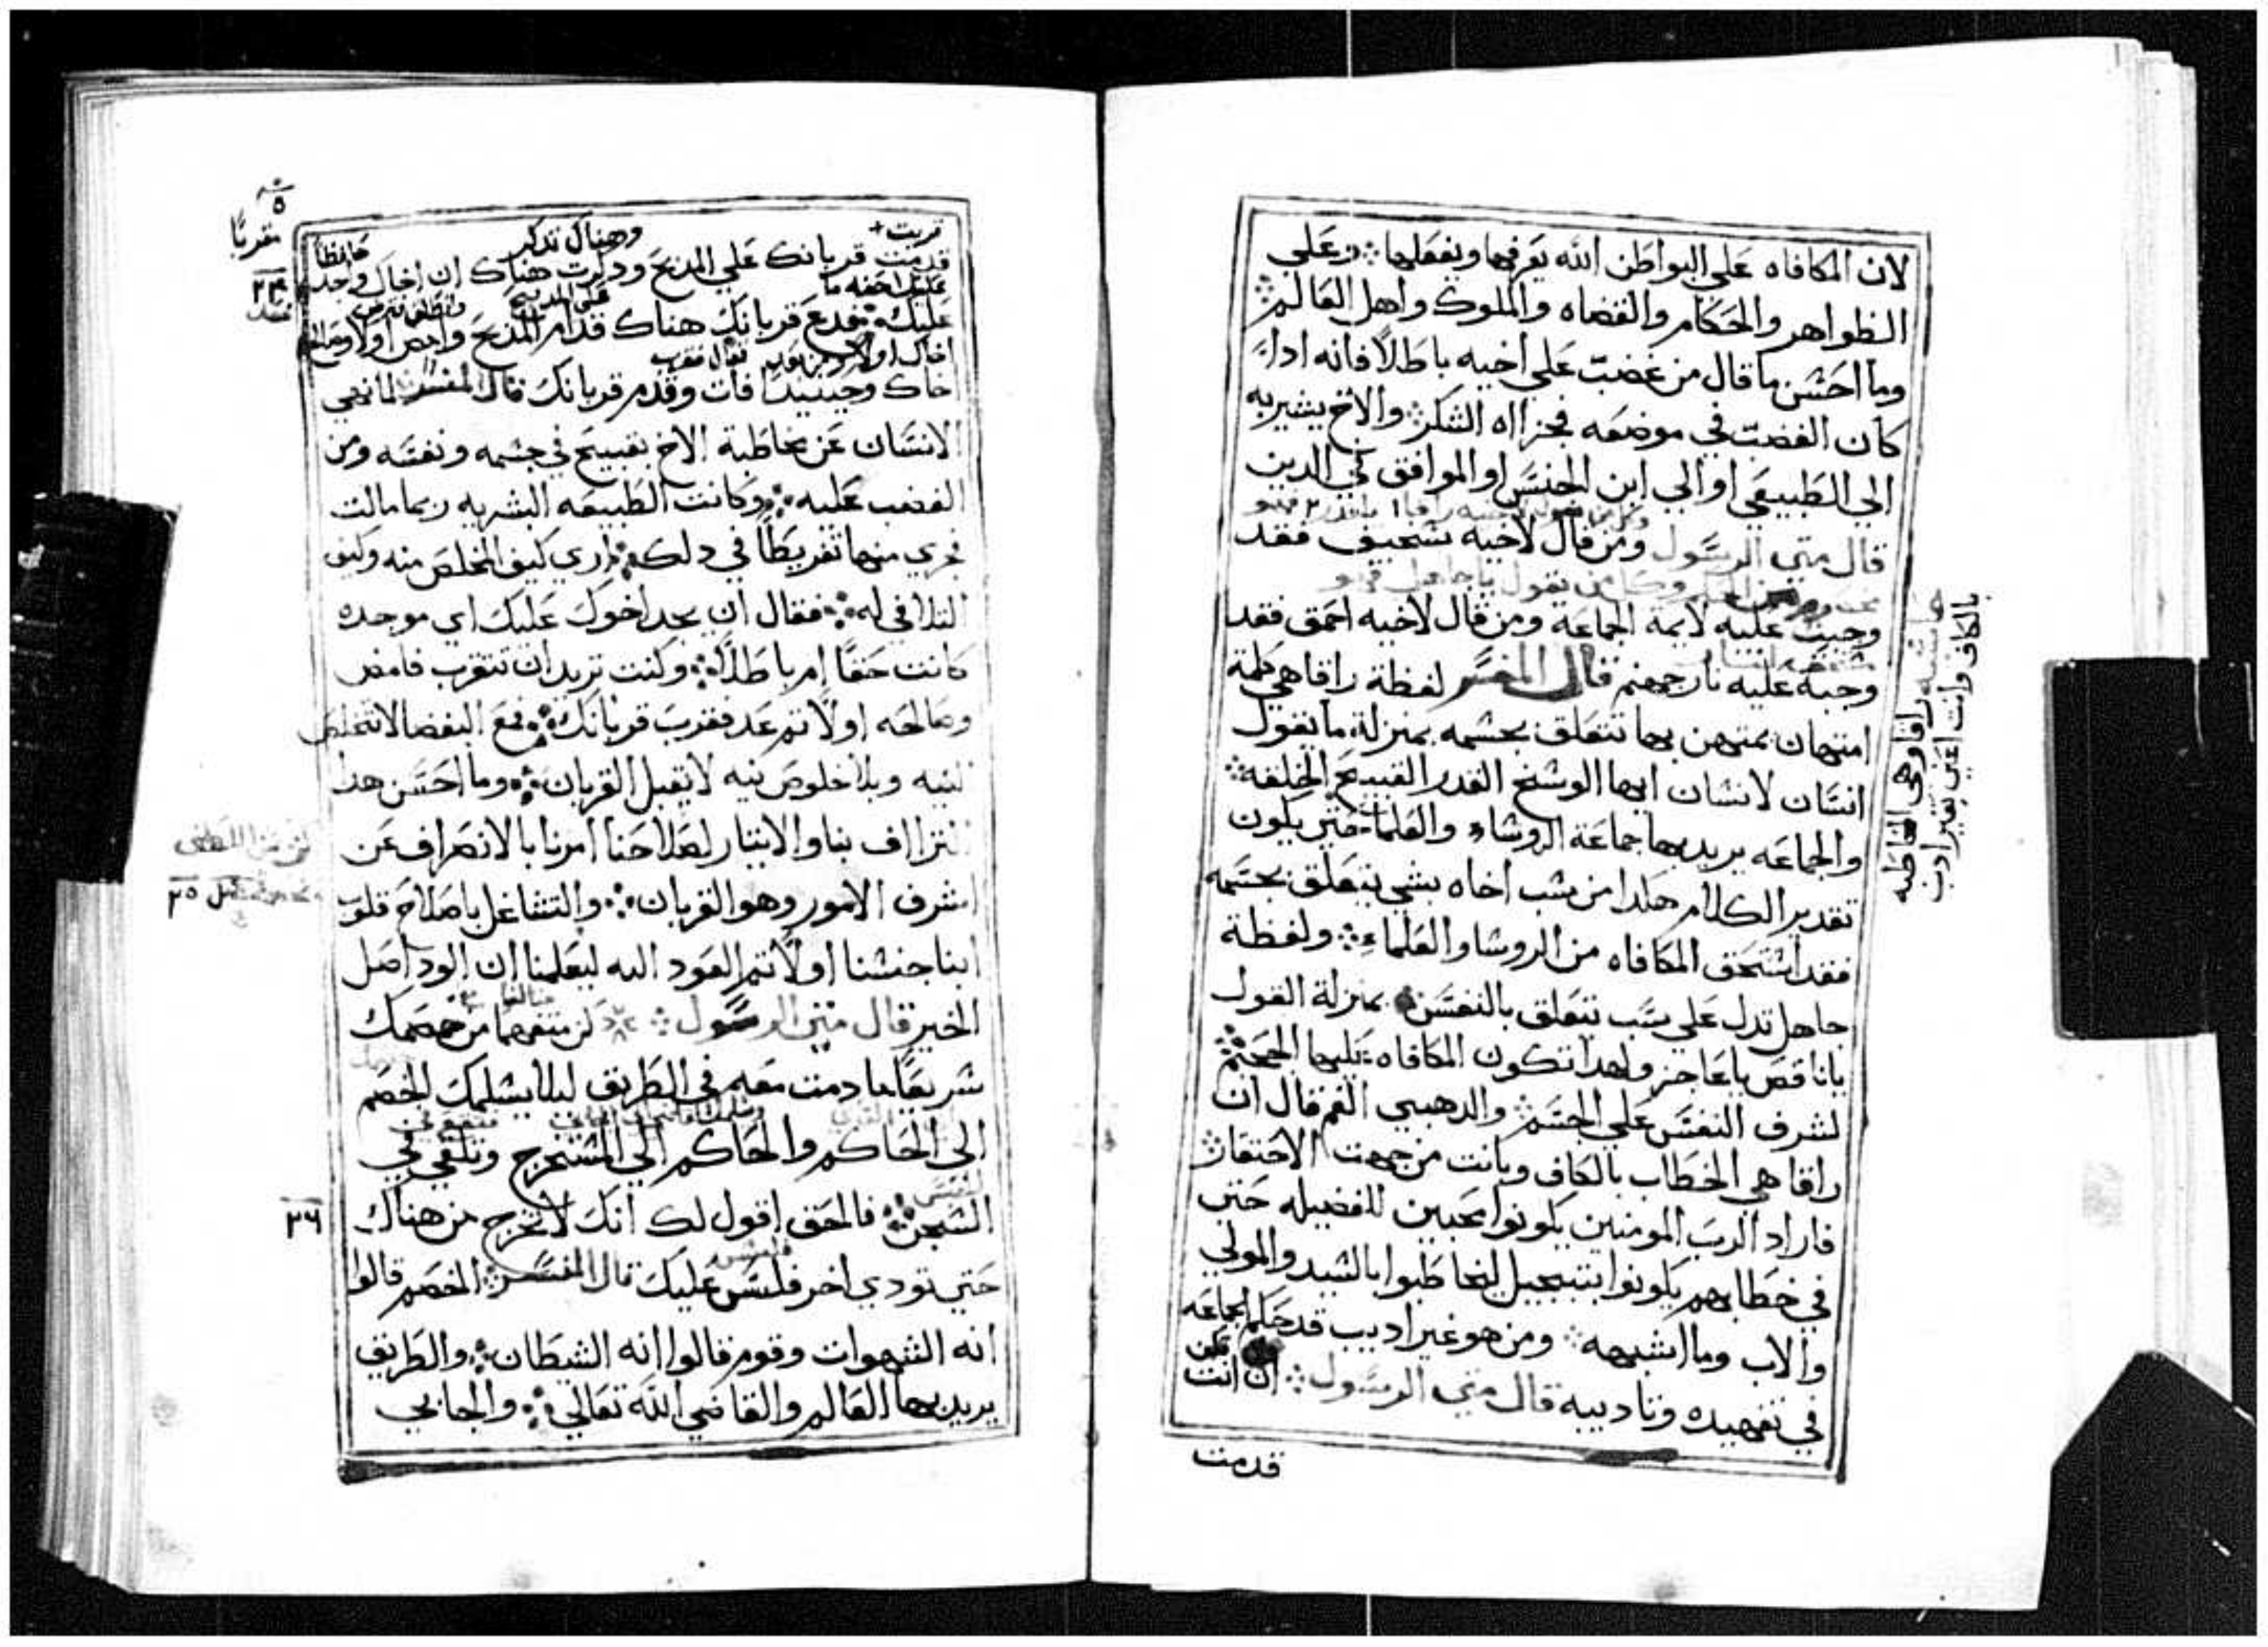 لان المكافاه علي البواطن الله يعرفها ويفعلها ⁘ وعلي
الظواهر والحكام والقضاه والملوك واهل العالم ⁘
وما احسن ما قال من غضب علي اخيه باطلاً فانه اداً
كان الغضب في موضعه فجزااه الشكر ⁘ والاخ يشير به
الي الطبيعي او الي ابن الجنس او الموافق في الدين
قال متي الرسول ومن قال لاخيه سخيف فقد
وجبت عليه لايمة الجماعة ومن قال لاخيه احمق فقد
وجبة عليه نار جهنم قال المفسر لفظة راقا هي كلمة
امتهان يمتهن بها تتعلق بجسمه بمنزلة ما يقول
انسان لانسان ايها الوسخ القدر القبيح الخلقه ⁘
والجماعه يريد بها جماعة الروساء والعلماء حتي يكون
تقدير الكلام هكدا من سب اخاه بشي يتعلق بجسمه
فقد استحق المكافاه من الروسا والعلماء ⁘ ولفظة
جاهل تدل علي سب تتعلق بالنفس ⁘ بمنزلة القول
يا ناقص يا عاجز ولهدا تكون المكافاه عليها الجحيم ⁘
لشرف النفس علي الجسم ⁘ والدهبي الفم قال ان
راقا هي الخطاب بالكاف وبانت من جهت الاحتقار ⁘
فاراد الرب المومنين يكونوا محبين للفضيله حتي
في خطابهم يكونوا بتبجيل ليخاطبوا بالسيد والمولي
والاب وما اشبهه ⁘ ومن هو غير اديب قد حكم الجماعه
في تفهيده وتاديبه قال متي الرسول ⁘ ان انت
قدمت
حاشيه راقا وهي المخاطبه
بالكاف وانت اعني بغير ادب
قربت
وهناك تدكر
مقربًا
قدمت قربانك علي المدبح ودكرت هناك ان اخاك واجد
عليك ⁘ فدع قربانك هناك قدام المدبح وامض اولا وصالح
اخاك وحينيد فات وقدم قربانك قال المفسر لما نهي
الانسان عن مخاطبة الاخ بقبيح في جسمه ونفسه ومن
الغضب عليه ⁘ وكانت الطبيعه البشريه ربما مالت
فجري منها تفريطاً في دلك ⁘ اري كيف المخلص منه وكيف
التلافي له ⁘ فقال ان يجد اخوك عليك اي موجده
كانت حقًا ام باطلاً ⁘ وكنت تريد ان تتقرب فامض
وصالحه اولاً تم عد فقرب قربانك ⁘ فمع البغضا لا تتخلص
النيه وبلا خلوص نيه لا يقبل القربان ⁘ وما احسن هدا
التزااف بنا والايتار لصلاحنا امرنا بالانصراف عن
اشرف الامور وهو القربان ⁘ والتشاغل باصلاح قلوب
ابنا جنسنا اولاً تم العود اليه ليعلمنا ان الود اصل
الخير قال متي الرسول ⁘ كن متفهما من خصمك
سريعًا ما دمت معه في الطريق ليلا يسلمك الخصم
الي الحاكم والحاكم الي المستخرج وتلقي في
السجن ⁘ فالحق اقول لك انك لا تخرج من هناك
٢٦
حتي تودي اخر فلس عليك قال المفسر ⁘ الخصم قالوا
انه الشهوات وقوم قالوا انه الشيطان ⁘ والطريق
يريد بها العالم والقاضي الله تعالي ⁘ والجابي